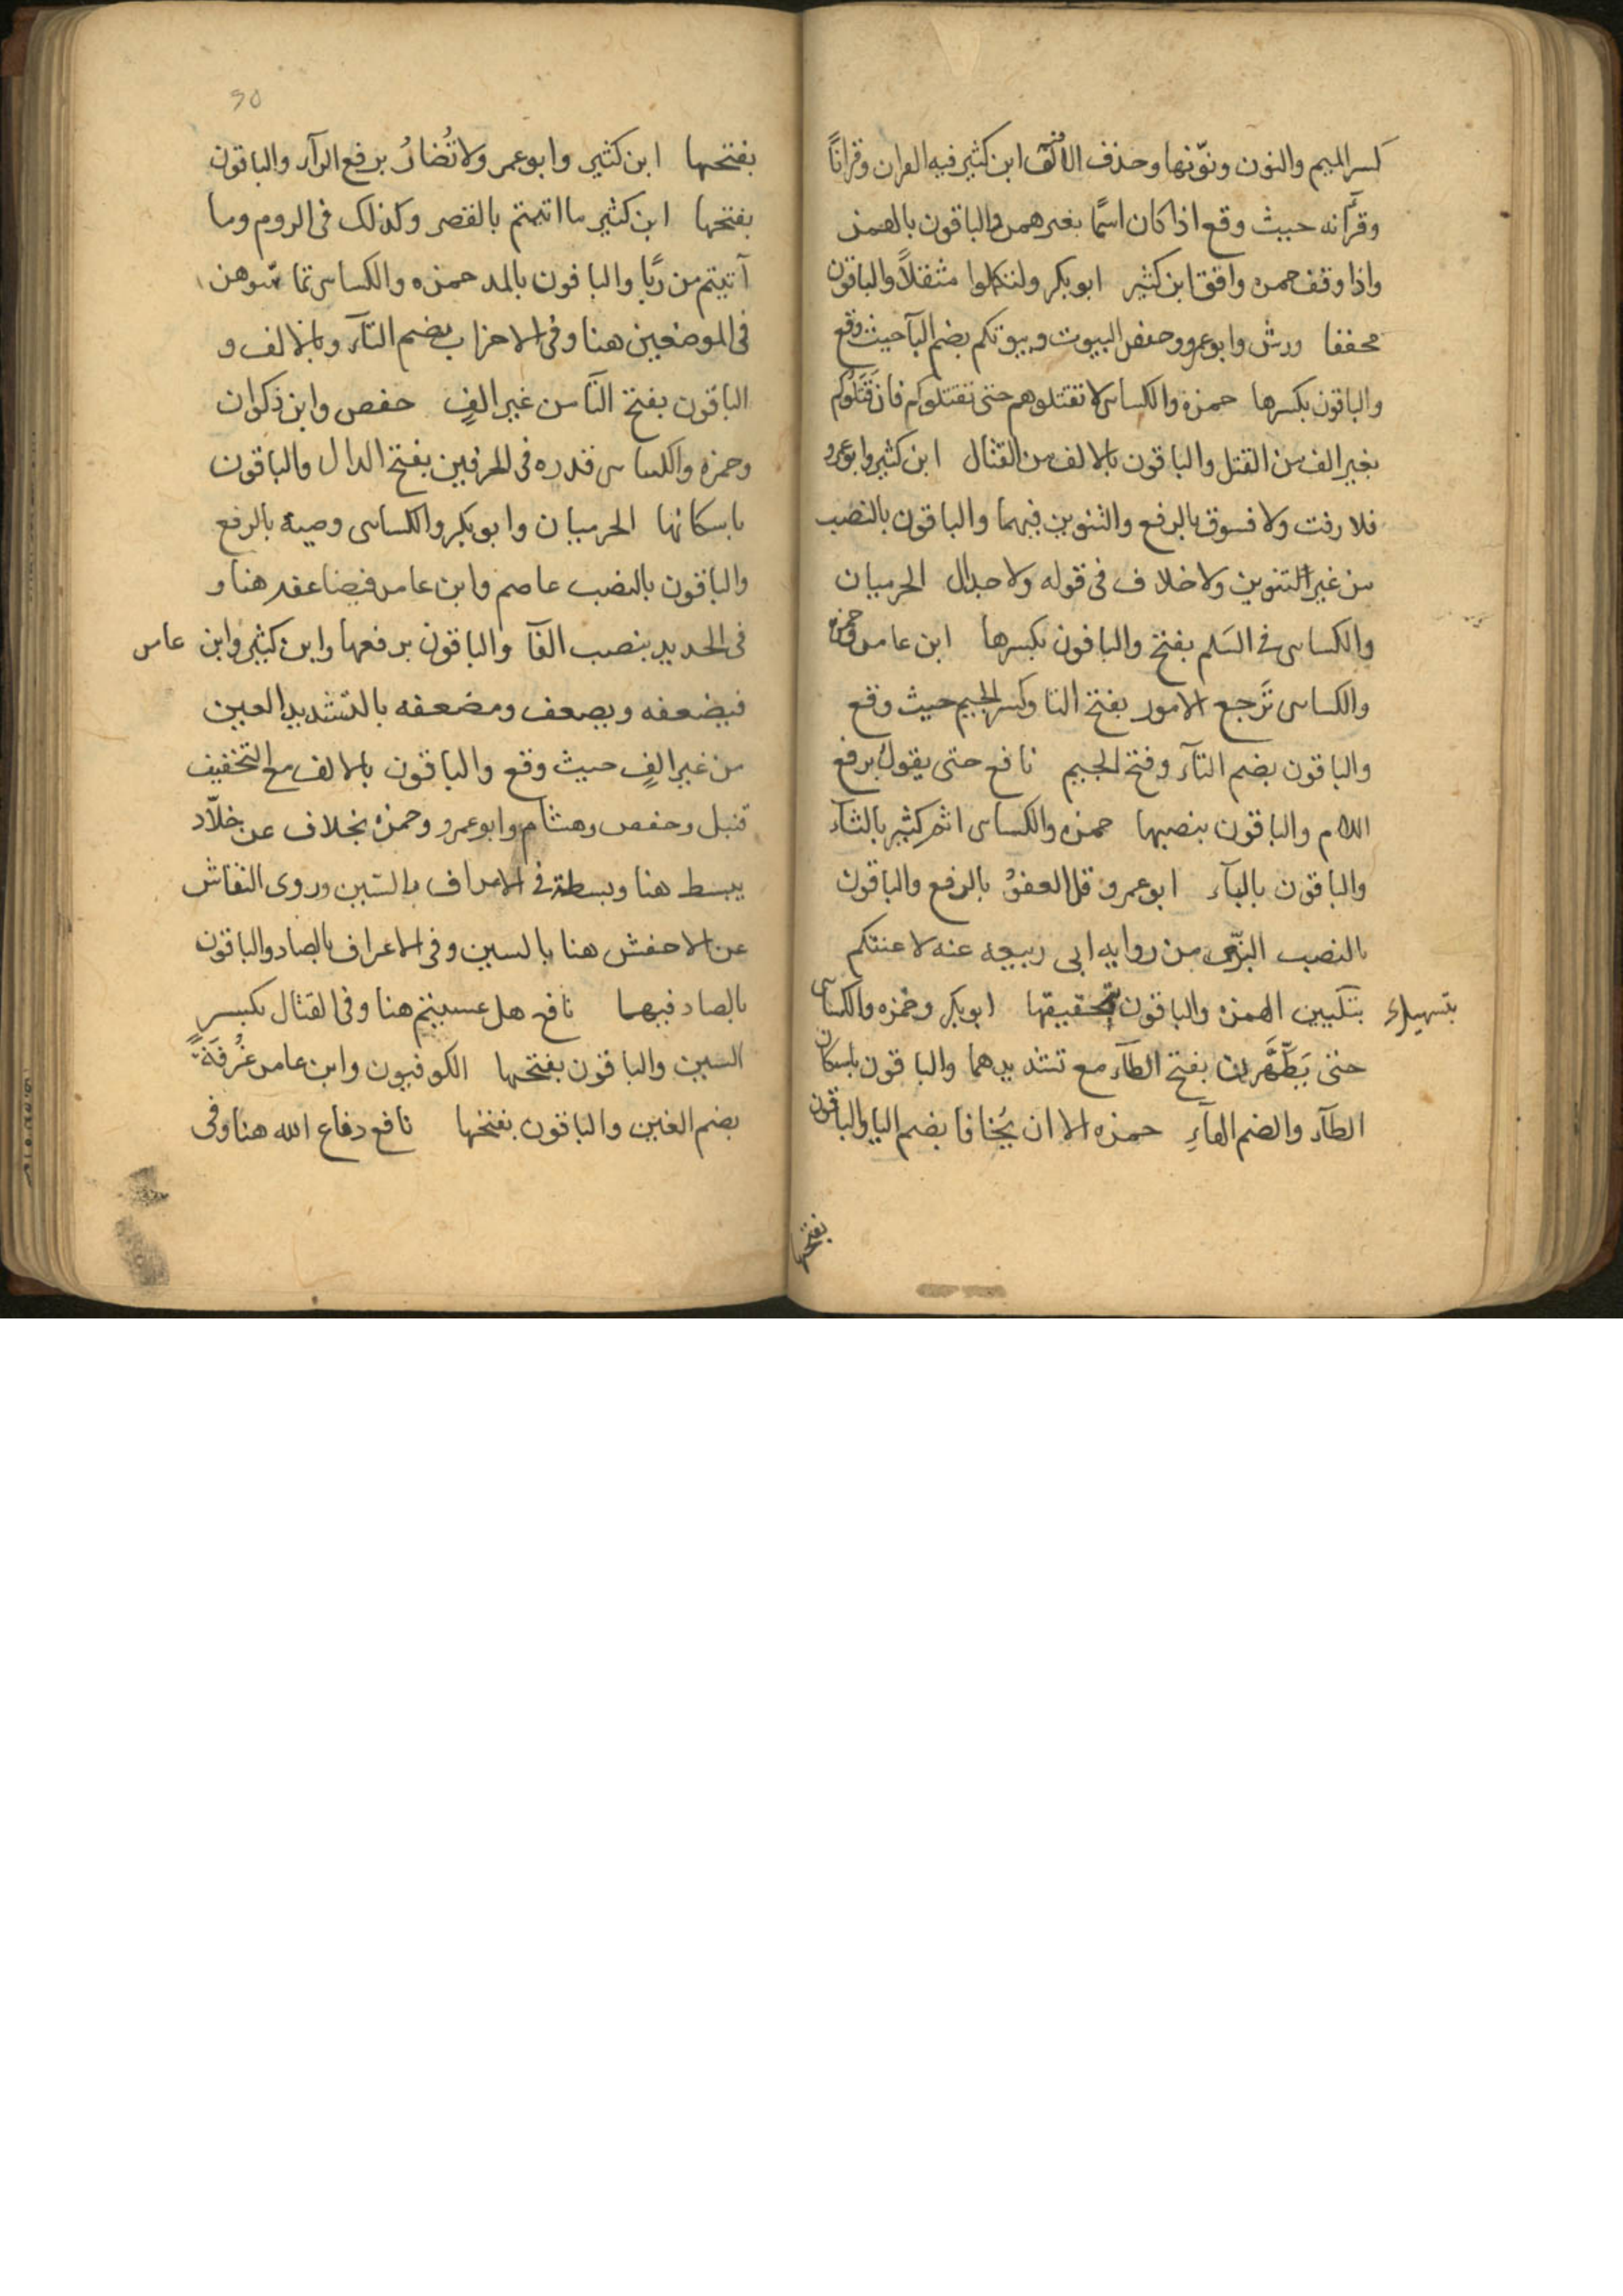 كسر الميم والنون ونوّنها وحذف الالف ابن كثير فيه القران وقرانًا
وقرآنه حيث وقع اذا كان اسمًا بغير همز والباقون بالهمز
واذا وقف حمزه وافق ابن كثير ابو بكر ولتكملوا مثقلاً والباقون
مخففا ورش وابو عمرو وحفص البيوت وبيوتكم بضم البآ حيث وقع
والباقون بكسرها حمزة والكساى لا تقتلوهم حتى تقتلوكم فان قَتَلُوكم
بغير الف من القتل والباقون بالالف من القتال ابن كثير وابو عمرو
فلا رفت ولا فسوق بالرفع والتنوين فيهما والباقون بالنصب
من غير التنوين ولا خلاف فى قوله ولا جدال الحرميان
والكساى فى السَلم بفتح والباقون بكسرها ابن عامر وحمزه
والكساى تَرجع الامور بفتح التا وكسر الجيم حيث وقع
والباقون بضم التآء وفتح الجيم نافع حتى يقولُ برفع
اللام والباقون بنصبها حمزه والكساى اثم كثير بالثآء
والباقون بالبآء ابو عمرو قل العفوُ بالرفع والباقون
بالنصب البزّى من روايه ابى ربيعه عنه لاعنتكم
بتسهيل بتليين الهمزه والباقون بتحقيقها ابو بكر وحمزه والكساى
حتى يَطَّهَّرن بفتح الطآء مع تشديدهما والباقون باسكان
الطآء والضم الهآءِ حمزه الا ان يُخافا بضم اليا والباقون
بفتحها
90
بفتحها ابن كثير وابو عمر ولا تُضارُ برفع الرآء والباقون
بفتحها ابن كثير ما اتيتم بالقصر وكذلك فى الروم وما
آتيتم من ربًا والباقون بالمد حمزه والكساى تماسّوهن
فى الموضعين هنا وفى الاحزاب بضم التآء وبالالف و
الباقون بفتح التآ من غير الفٍ حفص وابن ذكوان
وحمزه والكساى قدره فى الحرفين بفتح الدال والباقون
باسكانها الحرميان وابو بكر والكساى وصية بالرفع
والباقون بالنصب عاصم وابن عامر فيضاعفه هنا و
فى الحديد بنصب الفآ والباقون برفعها وابن كثير وابن عامر
فيضعفه ويضعف ومضعفه بالتشديد العين
من غير الفٍ حيث وقع والباقون بالالف مع التخفيف
قنبل وحفص وهشام وابو عمرو وحمزه بخلاف عن خلاّد
يبسط هنا وبسطة فى الاعراف بالسّين وروى النقاش
عن الاخفش هنا بالسين وفى الاعراف بالصاد والباقون
بالصاد فيهما نافع هل عسيتم هنا وفى القتال بكسرٍ
السين والباقون بفتحها الكوفيون وابن عامر غُرفَةً
بضم الغين والباقون بفتحها نافع دفاع الله هنا وفى